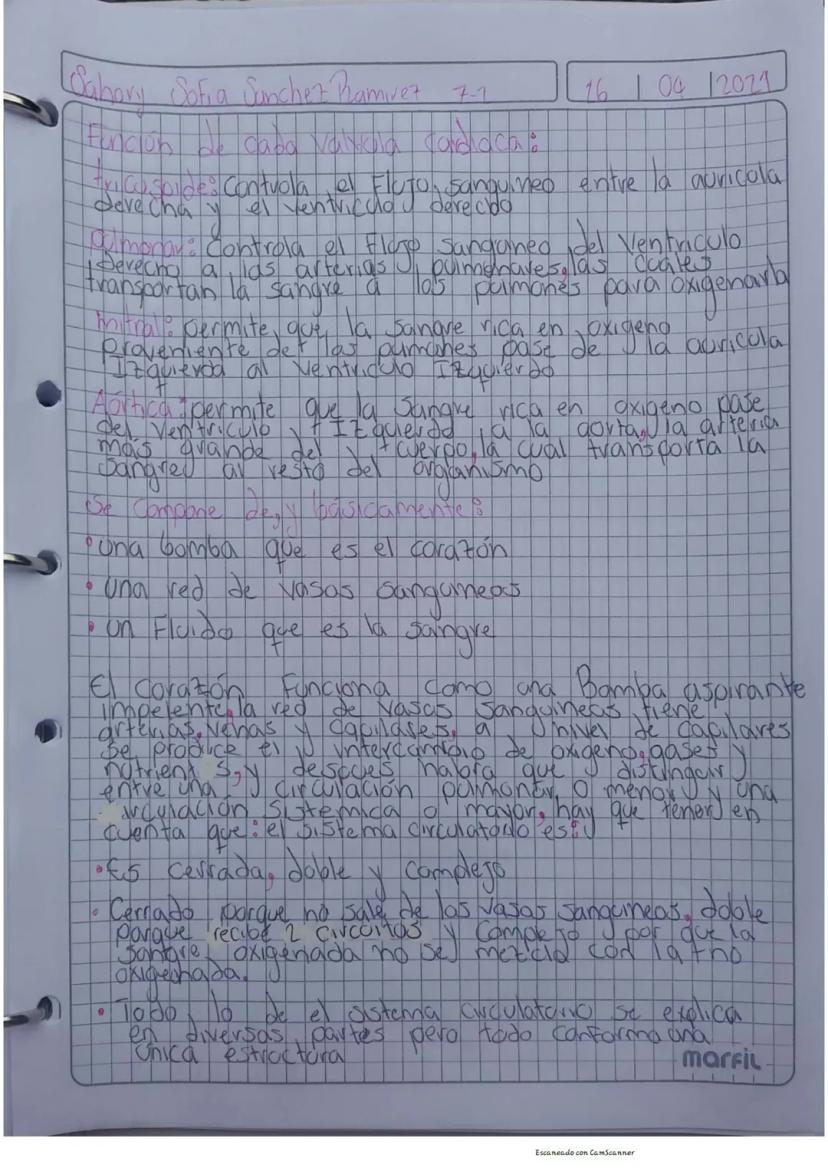 Sahory Sofia Sanchez Ramirez 7-1
16 | 04 | 2021
Función de cada valvula cardiaca:
tricuspide: Controla el Flujo sanguineo entre la auricola
derecha y el ventriculo derecho
Pulmonar: Controla el flujo sanguneo del ventriculo
derecho a las arterias pulmonares, las cuales
transportan la sangre a los pulmones para oxigenarla
mitral: permite que la sangre rica en oxigeno
proveniente de las pulmones pase de la auricula
Izquierda al ventriculo Izquierdo
Aórtica: permite que la sangre rica en oxigeno pase
del ventriculo Izquierdo a la aorta, la arteria
más grande del cuerpo, la cual transporta la
sangre al resto del organismo
Se compone de, y básicamente:
• una bomba que es el corazón
• una red de vasos sanguineos
• un Fluido que es la sangre
El corazón Funciona como una Bomba aspirante
impelente, la red de vasos sanguineas tiene
arterias, venas y capilares, a nivel de capilares
se produce el intercambio de oxigeno, gases y
y despues habra que distinguir
entre una circulación pulmonar o menor y una
circulación sistemica o mayor, hay que tener en
cuenta que: el sistema circulatorio es:
• Es cerrada, doble y complejo
• Cerrado porque no sale de los vasos sanguineos, doble
porque recibe 2 circuitos y complejo por que la
sangre oxigenada no se mezcla con la no
oxigenada.
• Todo lo de el sistema circulatorio se explica
en diversas partes pero todo conforma una
única estructura
marfil
Escaneado con CamScanner